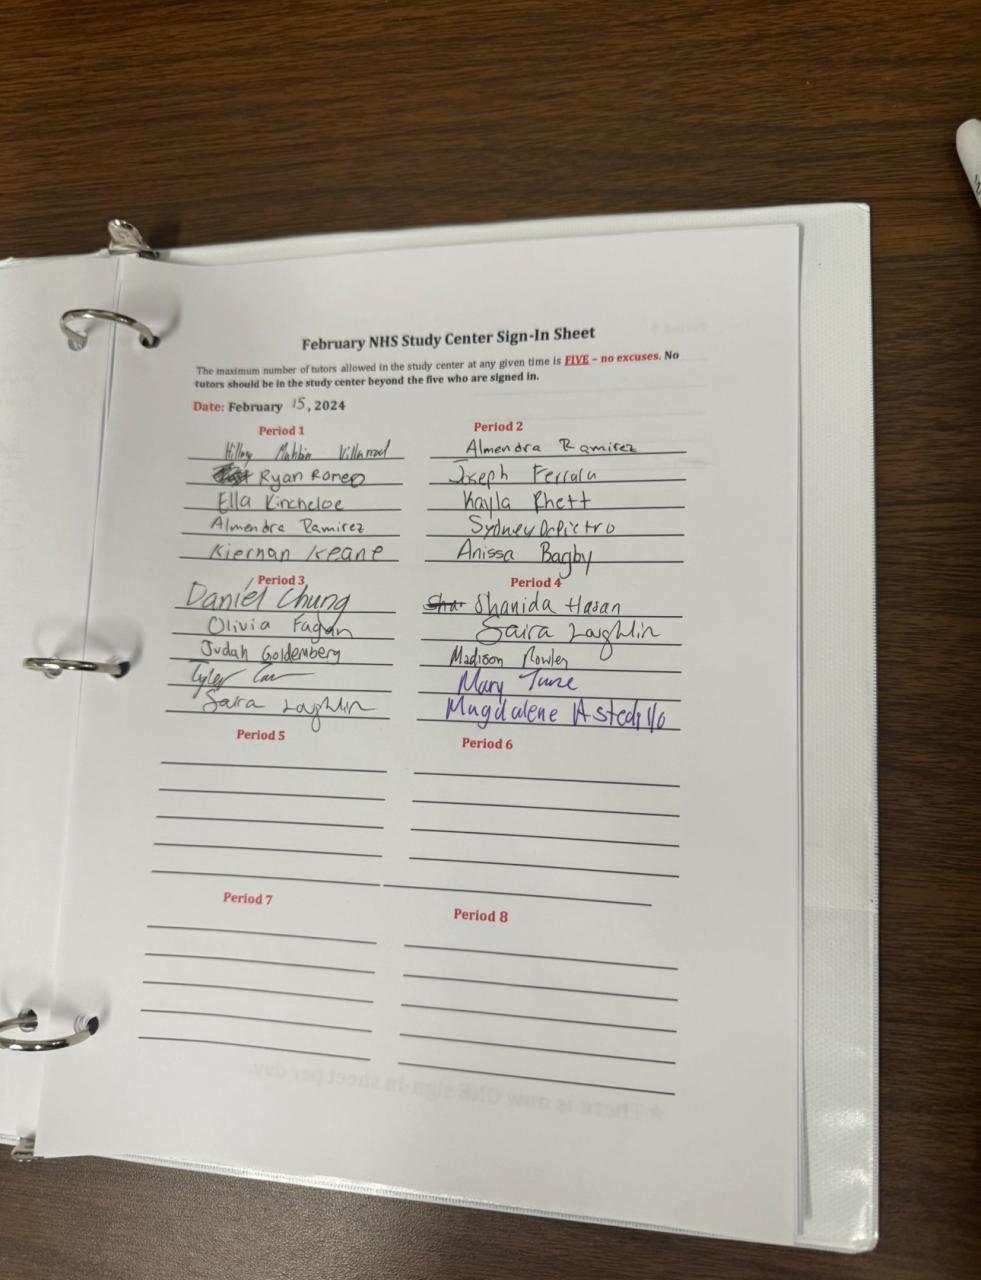 February NHS Study Center Sign-In Sheet
The maximum number of tutors allowed in the study center at any given time is FIVE – no excuses. No
tutors should be in the study center beyond the five who are signed in.
Date: February 15, 2024
Period 1
Ryan Romeo
Ella Kincheloe
Almendra Ramirez
Kiernan Keane
Period 2
Almendra Ramirez
Joseph
Kayla Rhett
Sydney DePietro
Anissa Bagby
Period 3
Daniel Chung
Olivia Fagan
Judah Goldemberg
Tyler
Saira Loughlin
Period 4
Shanida Hasan
Saira Loughlin
Madison Rowley
Mary June
Magdalene Astedillo
Period 5
Period 6
Period 7
Period 8
★ There is now ONE sign-in sheet per day.